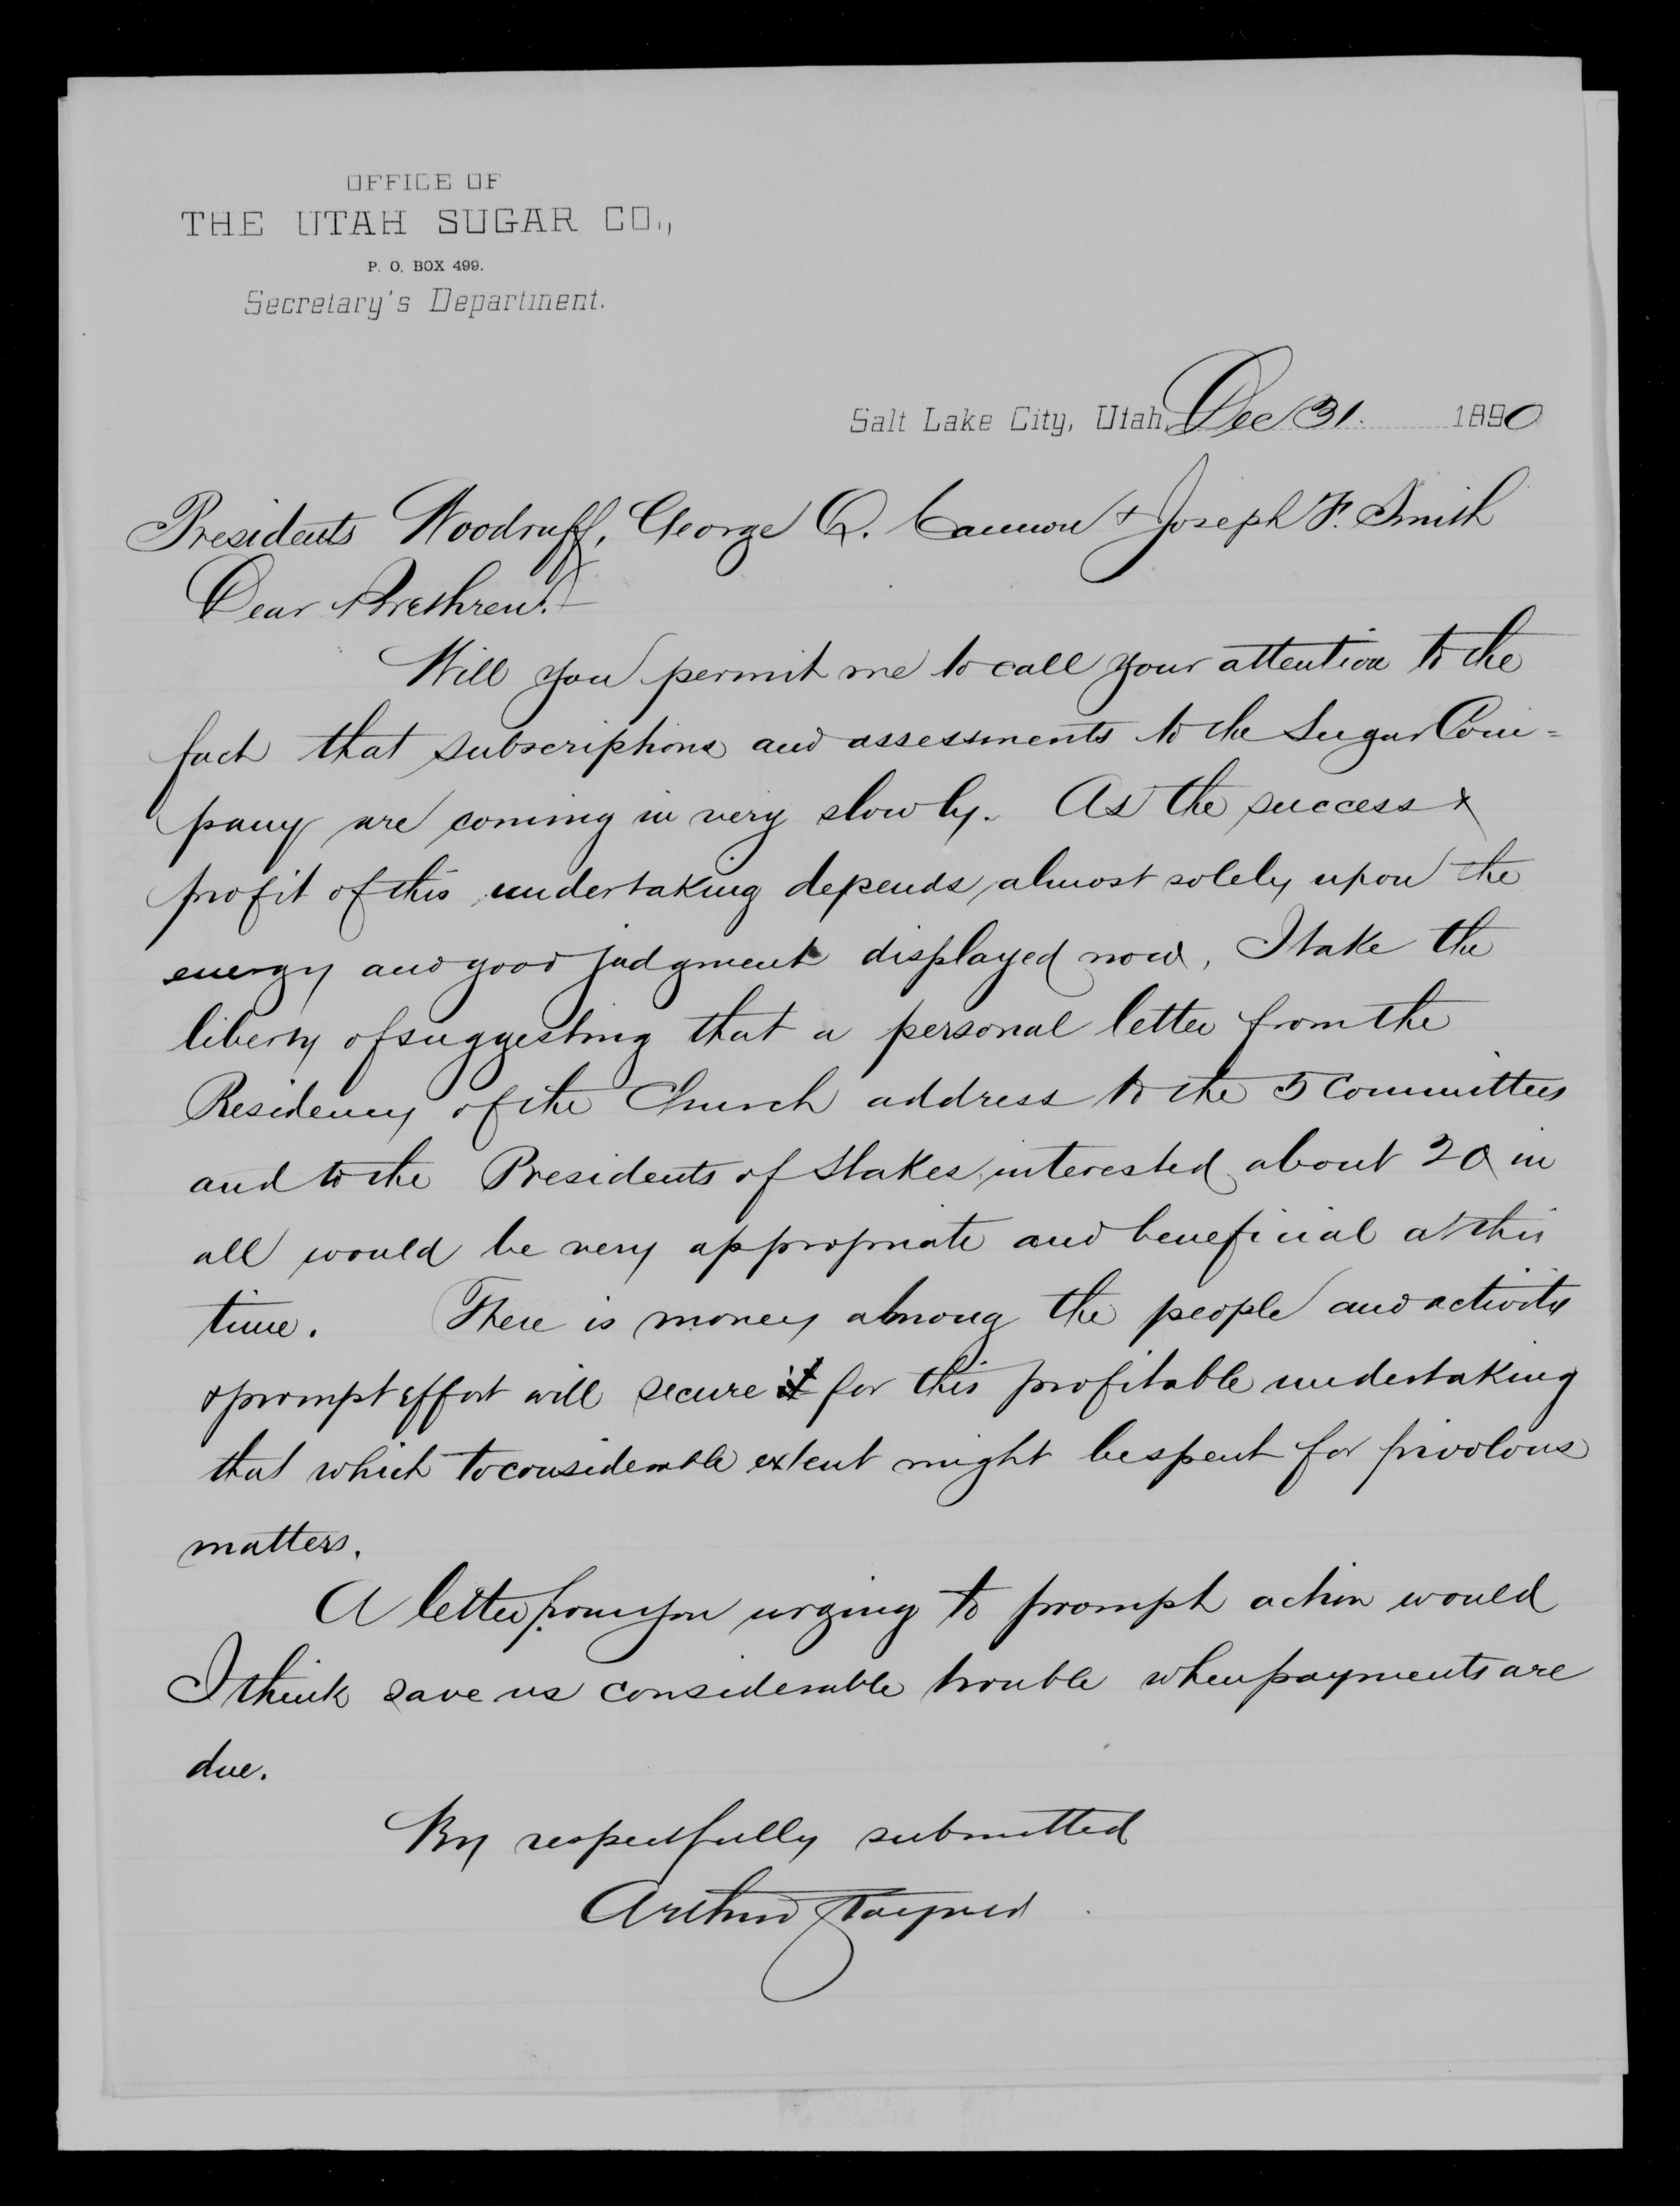 OFFICE OF
THE UTAH SUGAR CO.,
P. O. BOX 499.
Secretary's Department.
Salt Lake City, Utah, Dec 31. 1890
Presidents Woodruff, George Q. Cannon & Joseph F. Smith
Dear Brethren:
Will you permit me to call your attention to the
fact that subscriptions and assessments to the Sugar Com=
pany are coming in very slowly. As the success &
profit of this undertaking depends almost solely upon the
energy and good judgment displayed now, I take the
liberty of suggesting that a personal letter from the
Presidency of the Church address to the 5 Committees
and to the Presidents of Stakes interested about 20 in
all would be very appropriate and beneficial at this
time. There is money among the people and activity
& prompt effort will secure it for this profitable undertaking
that which to considerable extent might be spent for frivolous
matters.
A letter from you urging to prompt action would
I think save us considerable trouble when payments are
due.
respectfully submitted
Arthur Stayner